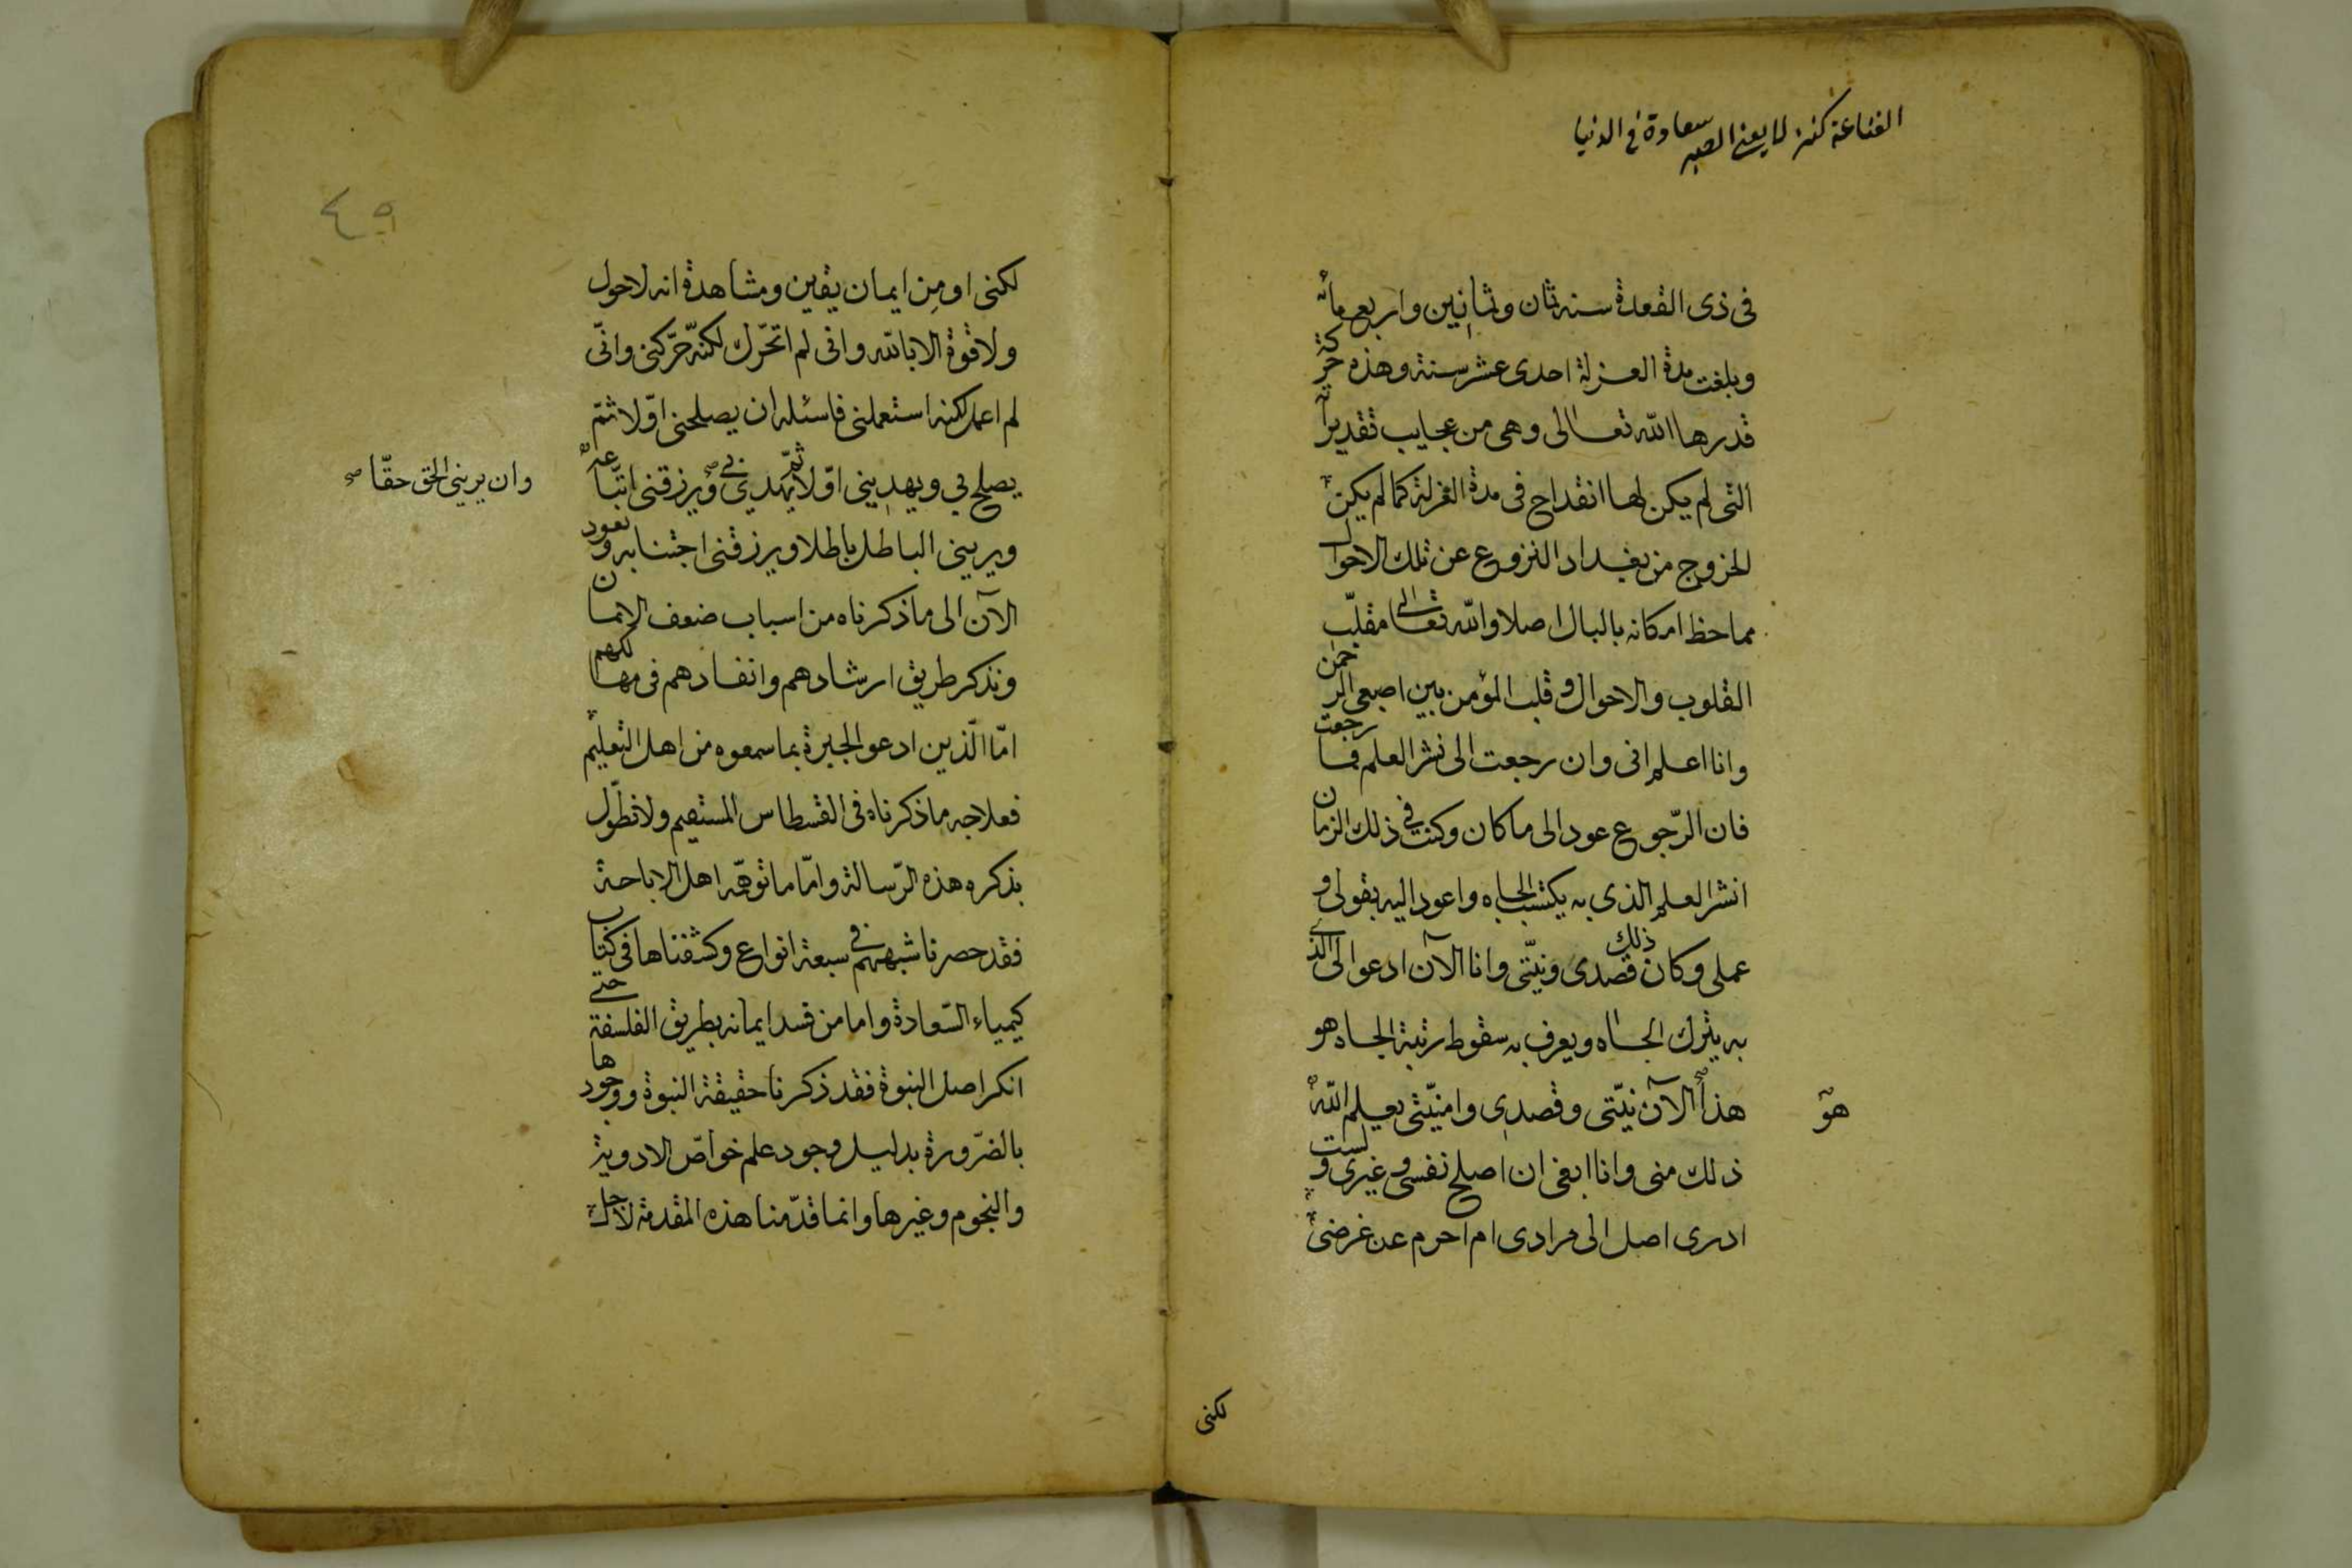 القناعة كنز لا يفنى الصبر سعادة في الدنيا
فى ذى القعدة سنه ثمان وثمانين واربع مائه
وبلغت مدة العزلة احدى عشر سنة وهذه حركة
قدرها الله تعالى وهى من عجايب تقديراته
التى لم يكن لها انقداح فى مدة العزلة كما لم يكن
الخروج من بغداد النزوع عن تلك الاحوال
مما حظ امكانه بالبال اصلا والله تعالى مقلّب
القلوب والاحوال و قلب المؤمن بين اصبعى الرحمن
وانا اعلم انى وان رجعت الى نشر العلم فما رجعت
فان الرّجوع عود الى ما كان وكنت في ذلك الزمان
انشر العلم الذي به يكتسب الجاه واعود اليه بقولى و
عملى وكان ذلك قصدى ونيّتى وانا الآن ادعوا الى الذي
به يترك الجاه ويعرف به سقوط رتبة الجاه هو
هذا الآن نيّتى وقصدى وامنيّتى يعلم الله
هو
ذلك منى وانا ابغى ان اصلح نفسى و غيرى و لست
ادرى اصل الى مرادى ام احرم عن غرضى
لكنى
٤٩
لكنى اومِن ايمان يقين ومشاهدة انه لا حول
ولا قوة الا بالله وانى لم اتحرّك لكنّه حرّكنى وانّى
لم اعمل لكنه استعملنى فاسئله ان يصلحنى اوّلا ثمّ
يصلح بي ويهدينى اوّلا ثمّ يهدي بي ويرزقنى اتّباعه
وان يرينى الحق حقّا صح
ويرينى الباطل باطلا ويرزقنى اجتنابه ونعود
الآن الى ما ذكرناه من اسباب ضعف الايمان
ونذكر طريق ارشادهم وانقاذهم فى مهالكهم
امّا الّذين ادعو الحيرة بما سمعوه من اهل التعليم
فعلاجه ما ذكرناه فى القسطاس المستقيم ولا نطوّل
بذكره هذه الرّسالة وامّا ما توهّمه اهل الاباحة
فقد حصرنا شبههم في سبعة انواع وكشفناها فى كتاب
كيمياء السّعادة واما من فسد ايمانه بطريق الفلسفة حتى
انكر اصل النبوة فقد ذكرنا حقيقة النبوة ووجودها
بالضّرورة بدليل وجود علم خواصّ الادوية
والنجوم وغيرها وانما قدّمنا هذه المقدمة لاجل